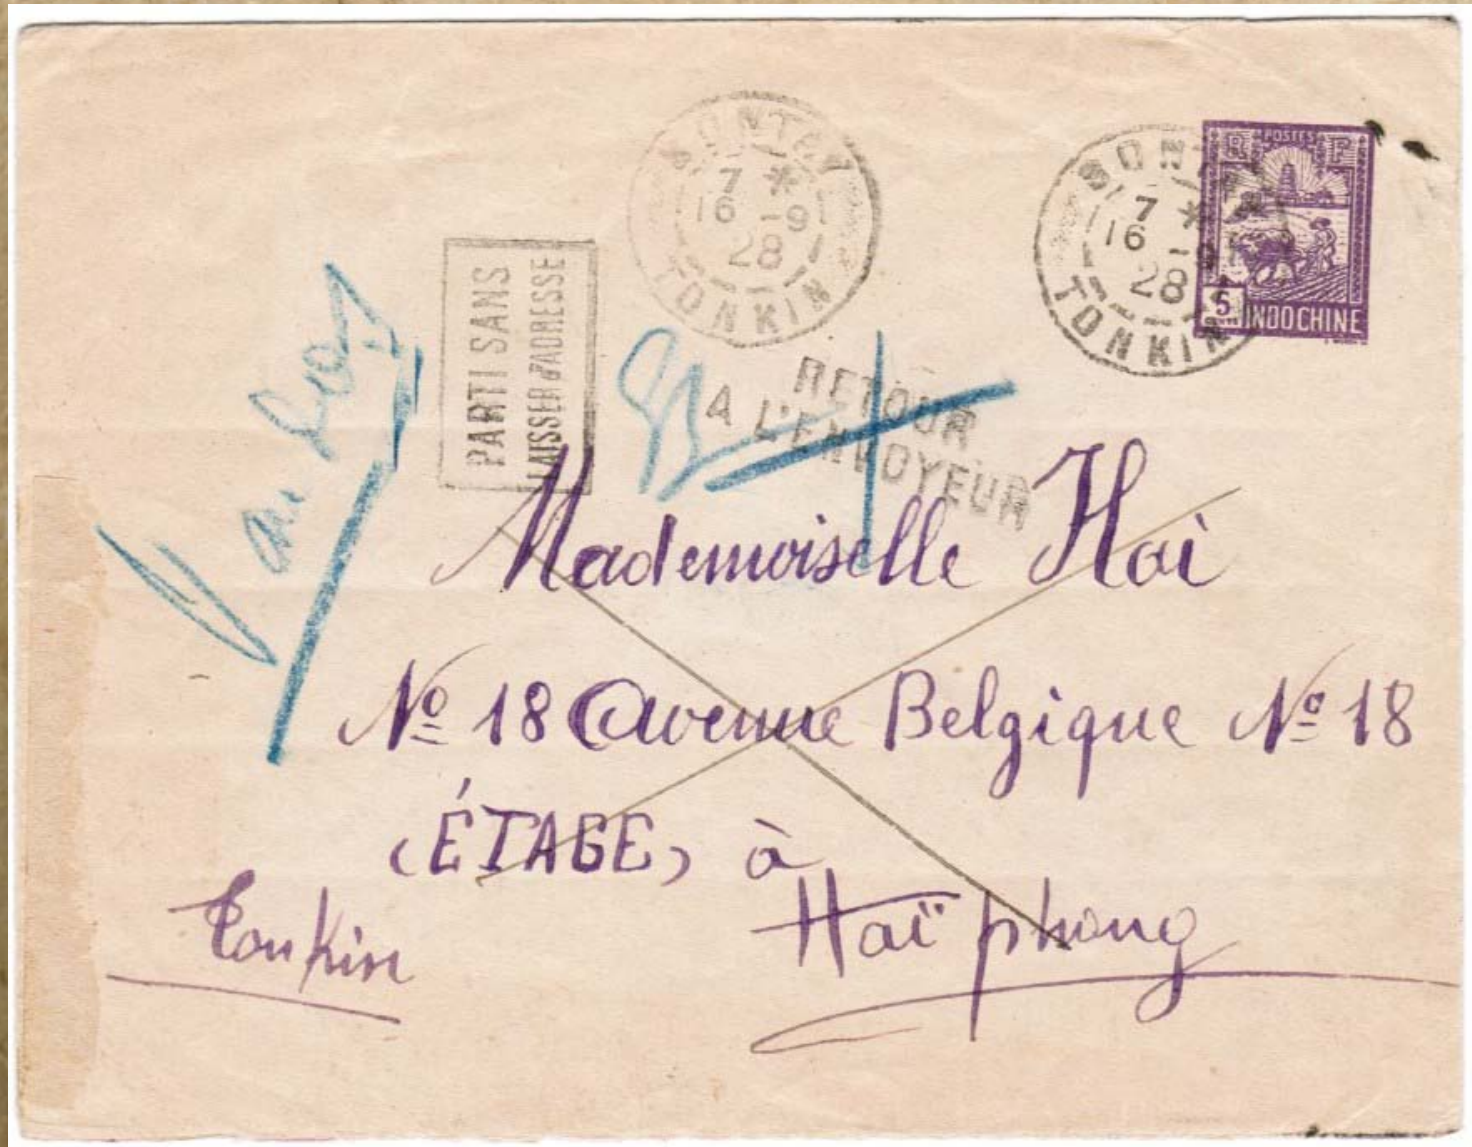 SONTAY
7 *
16 -9
28
TONKIN
SONTAY
7 *
16 -9
28
TONKIN
POSTES
R F
5
INDOCHINE
PARTI SANS
LAISSER d'ADRESSE
RETOUR
A L'ENVOYEUR
Mademoiselle Hai
Nº 18 Avenue Belgique Nº 18
(ÉTAGE) à
Haïphong
Tonkin